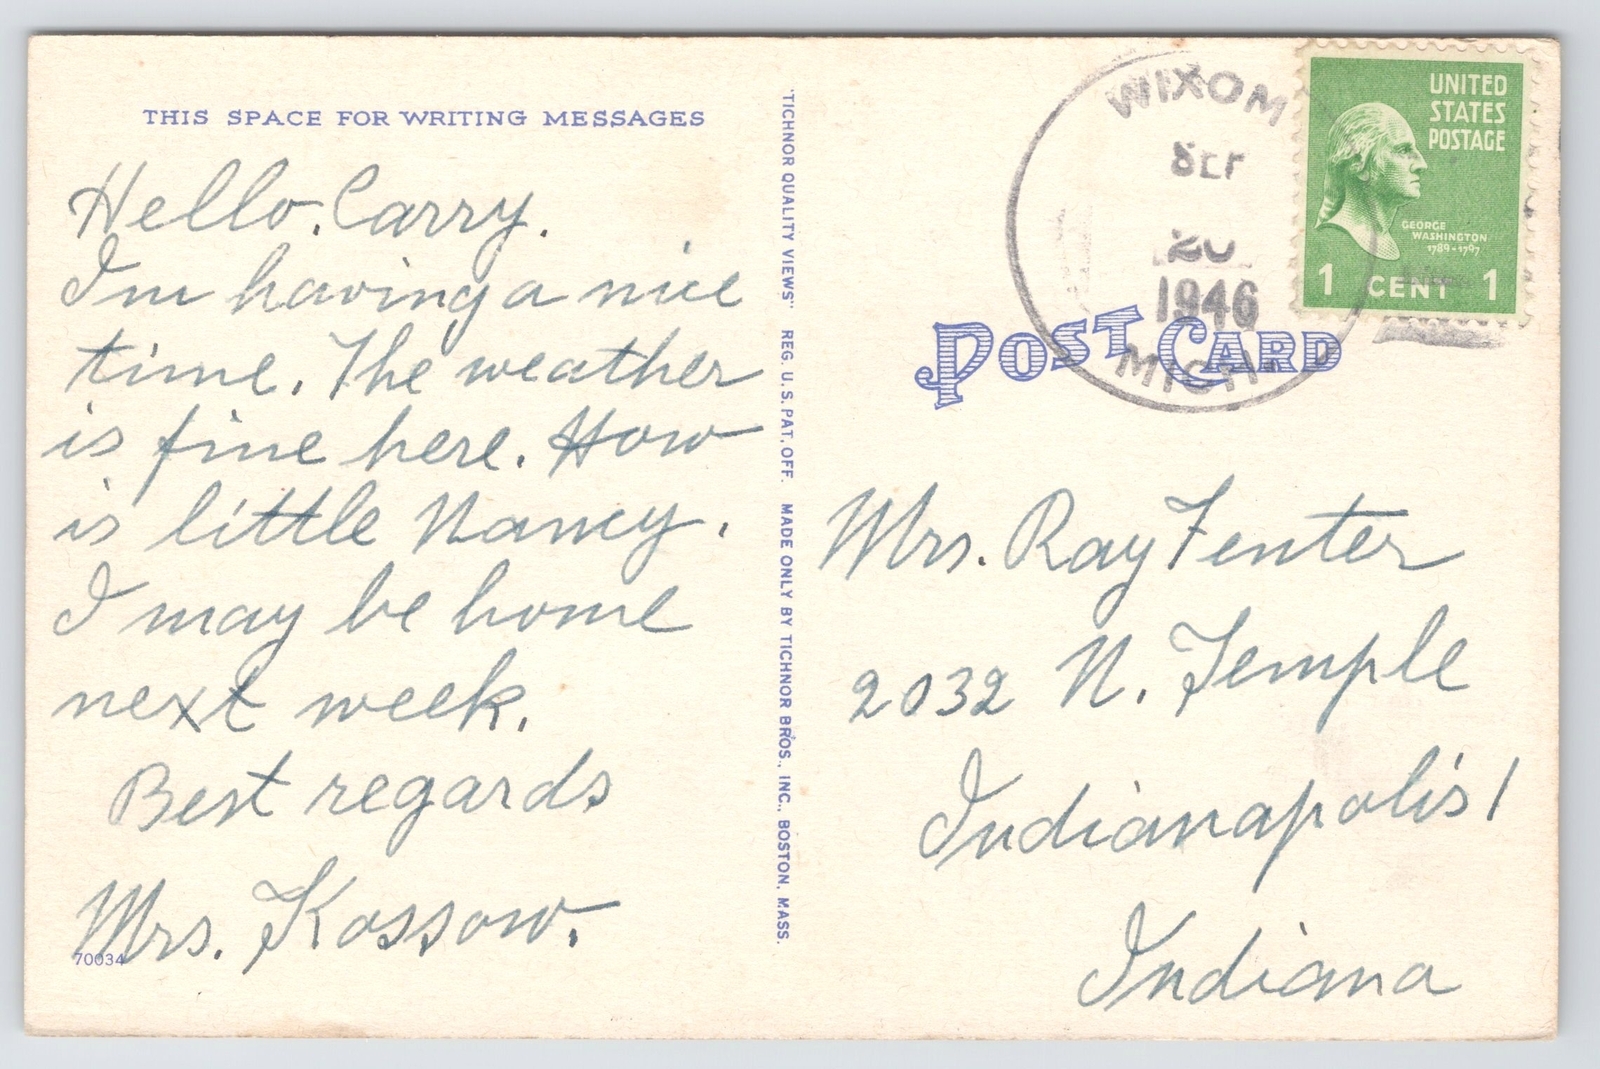 THIS SPACE FOR WRITING MESSAGES
Hello. Carry.
Im having a nice
time. The weather
is fine here. How
is little Nancy.
I may be home
next week.
Best regards
Mrs. Kossow.
70034
"TICHNOR QUALITY VIEWS" REG. U. S. PAT. OFF. MADE ONLY BY TICHNOR BROS., INC., BOSTON, MASS.
WIXOM
SEP
20
1946
MICH.
UNITED
STATES
POSTAGE
GEORGE
WASHINGTON
1789-1797
1 CENT 1
POST CARD
Mrs. Ray Fenter
2032 N. Temple
Indianapolis 1
Indiana